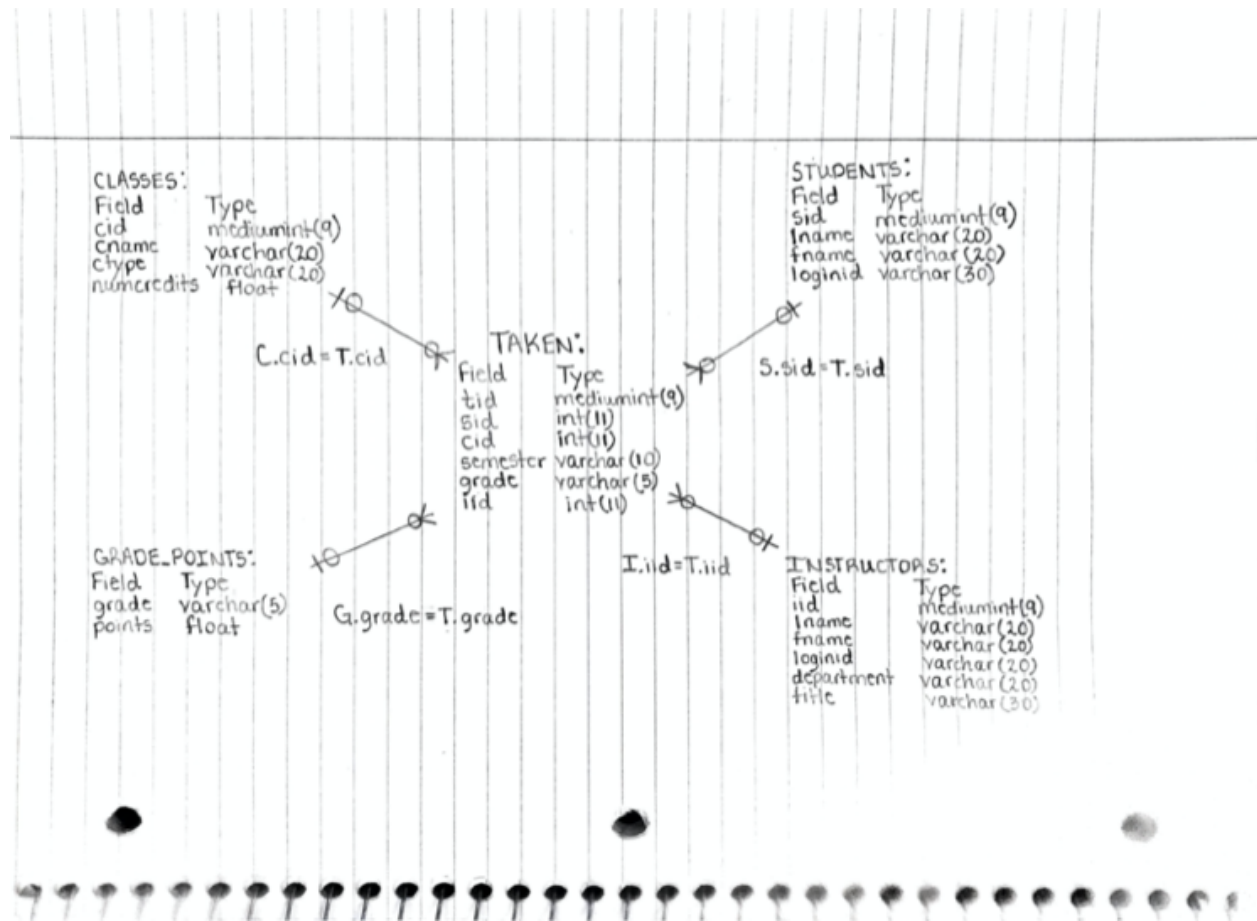 CLASSES:
Field Type
cid mediumint(9)
cname varchar(20)
ctype varchar(20)
numcredits float
C.cid=T.cid
STUDENTS:
Field Type
sid mediumint(9)
lname varchar(20)
fname varchar(20)
loginid varchar(30)
S.sid=T.sid
TAKEN:
Field Type
tid mediumint(9)
sid int(11)
cid int(11)
semester varchar(10)
grade varchar(5)
iid int(11)
GRADE_POINTS:
Field Type
grade varchar(5)
points float
G.grade=T.grade
I.iid=T.iid
INSTRUCTORS:
Field Type
iid mediumint(9)
lname varchar(20)
fname varchar(20)
loginid varchar(20)
department varchar(20)
title varchar(30)